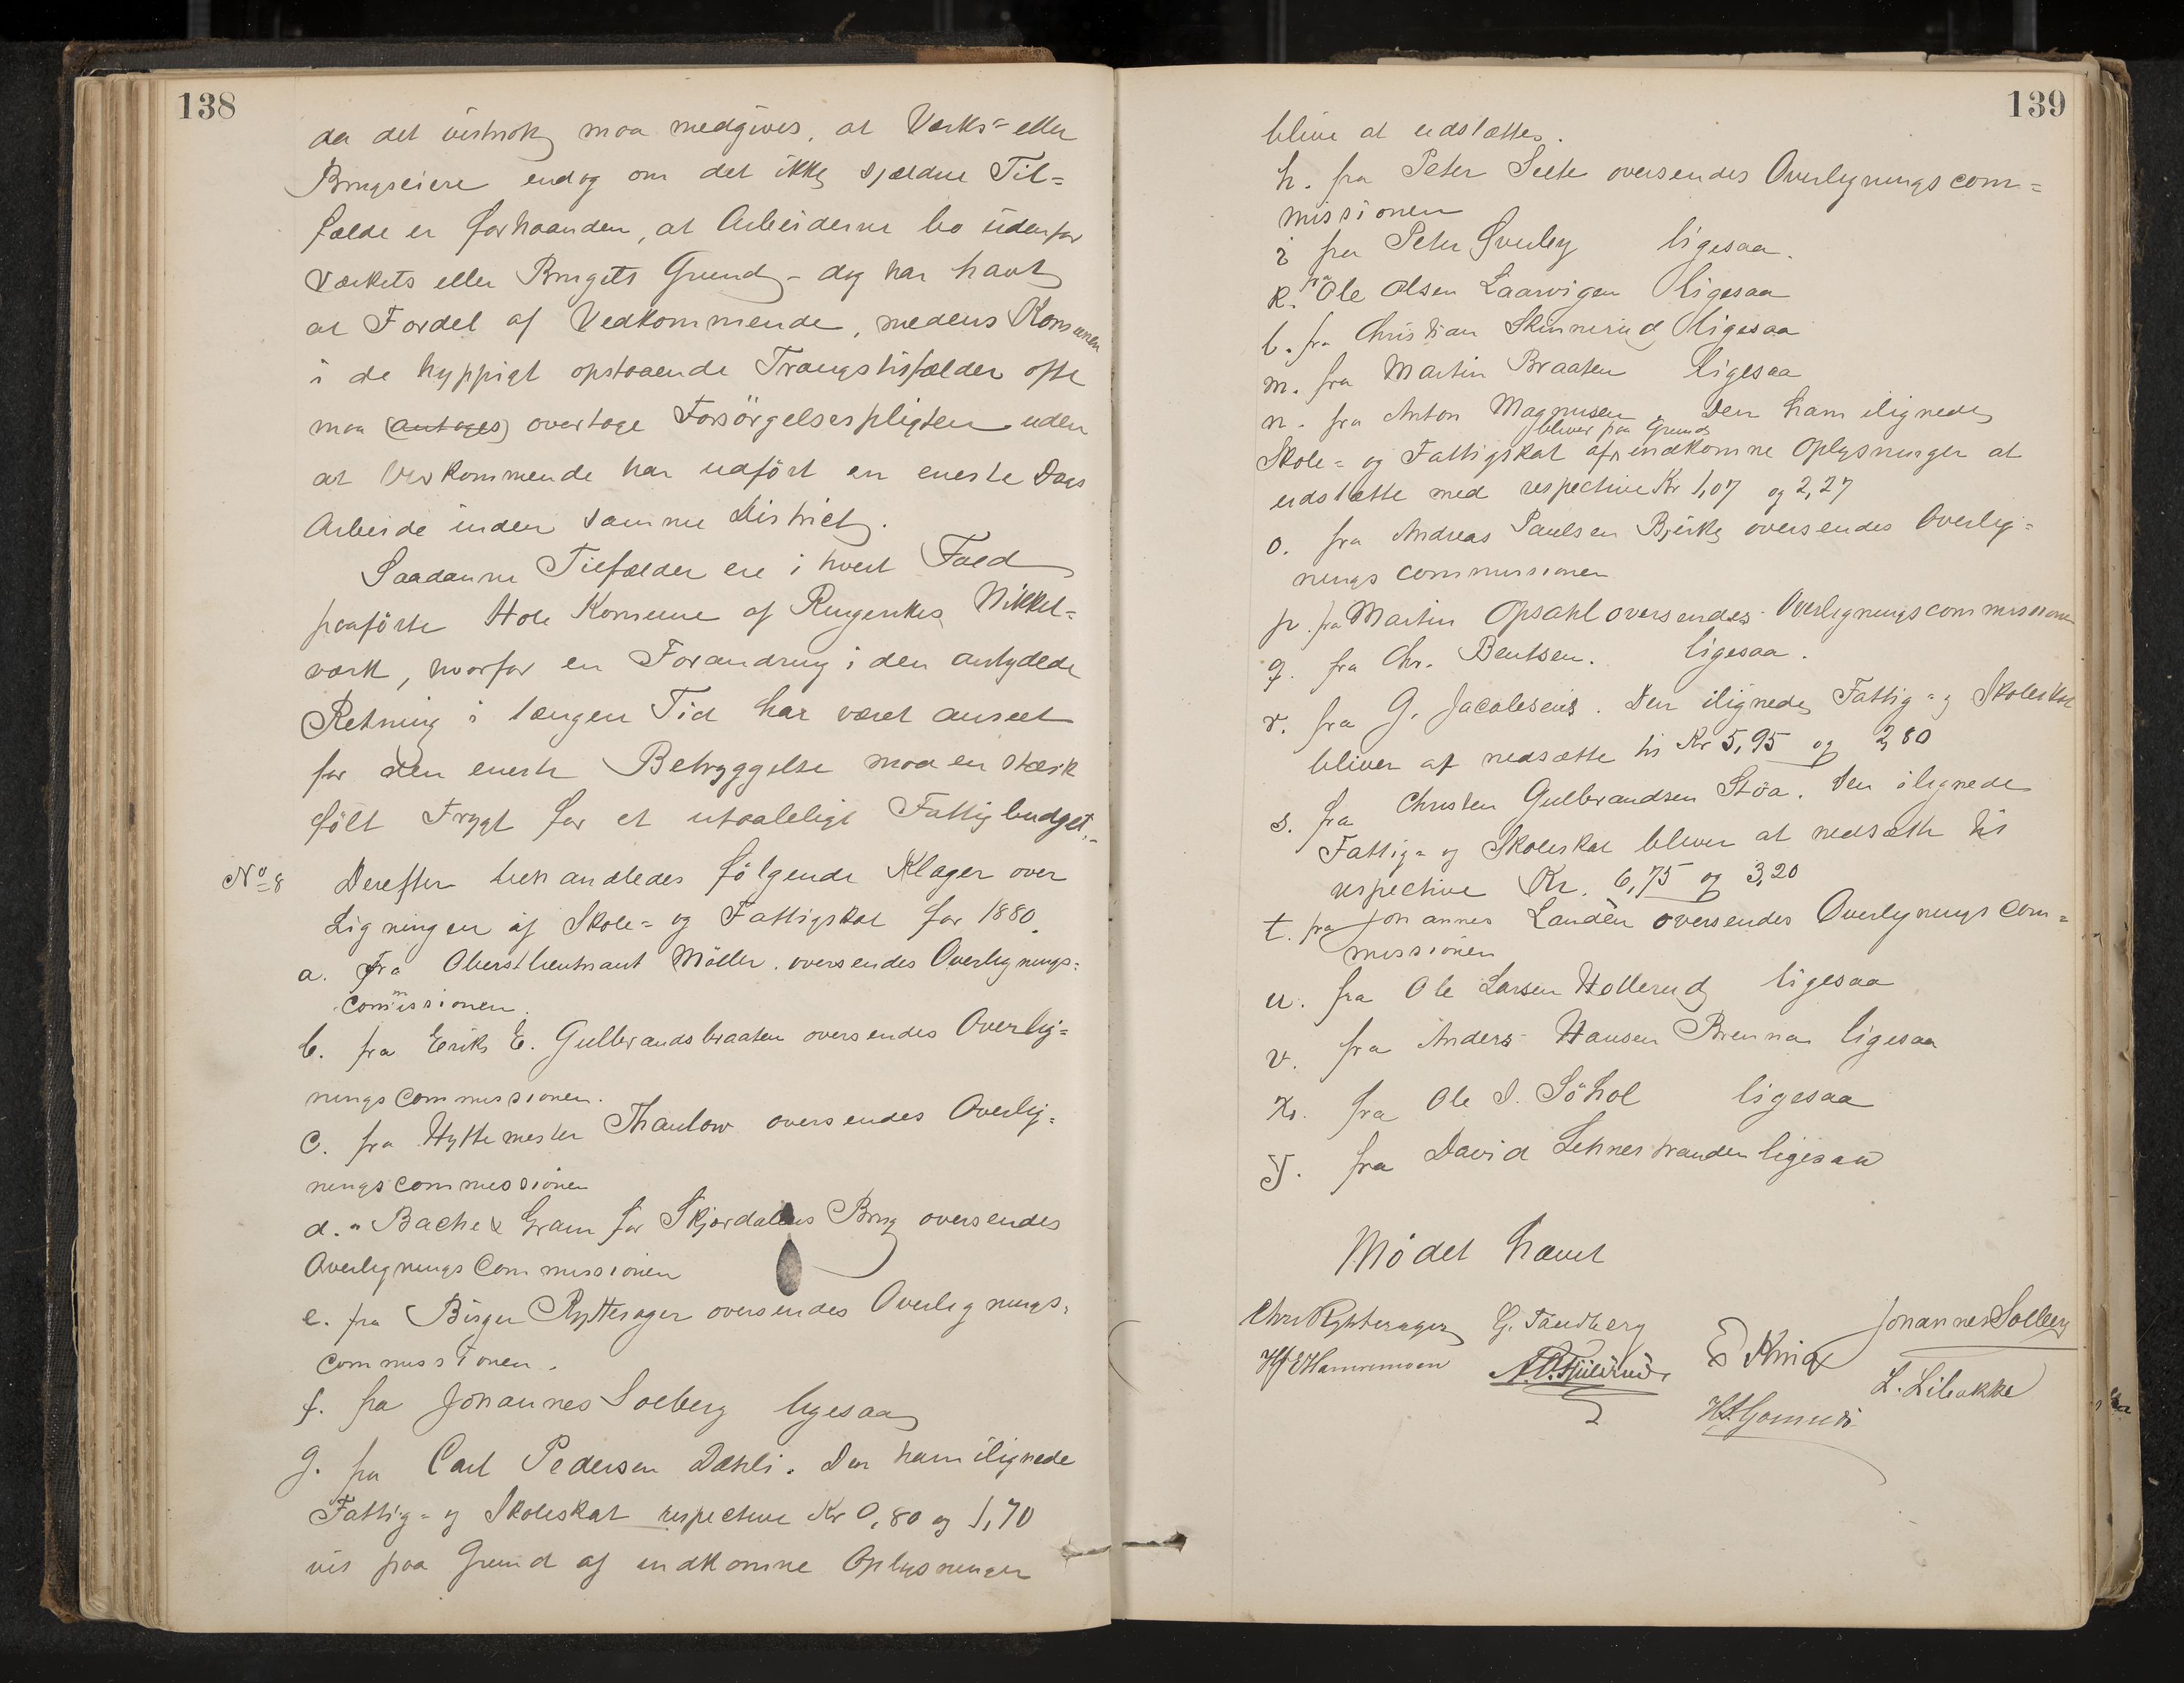 138
da det vistnok maa medgives, at Værks= eller
Brugseiere endog om det ikke sjeldne Til=
fælde er forhaanden, at Arbeiderne bo udenfor
Værkets eller Brugets Grund – dog har havt
at Fordel af Vedkommende, medens Komunen
i de hyppigt opstaaende Trangstilfælder ofte
maa (antages) overtage Forsörgelsespligten uden
at Vedkommende har udfört en eneste Dags
Arbeide inden samme District.
Saadanne Tilfælder ere i hvert Fald
paaförte Hole Komune af Ringerikes Nikkel=
værk, hvorfor en Forandring i den antydede
Retning i længere Tid har været anseet
for den eneste Betryggelse mod en stærk
fölt Frygt for et utaaleligt Fattigbudget.=
No 8 Derefter behandledes fölgende Klager over
Ligningen af Skole= og Fattigskat for 1880.
a. Fra Oberstlieutnant Möller. oversendes Overlignings=
commissionen.
b. fra Erik E. Gulbrandsbraaten oversendes Overlig=
ningscommissionen.
c. fra Hyttemester Thaulow oversendes Overlig=
ningscommissionen
d. " Bache & Gram for Skjærdalens Brug oversendes
Overligningscommissionen
e. fra Birger Rytterager oversendes Overlignings=
commissionen.
f. fra Johannes Solberg ligesaa
g. fra Carl Pedersen Dæhli. Den ham ilignede
Fattig= og Skoleskat respective Kr 0,80 og 1,70
vil paa Grund af indkomne Oplysninger
139
blive at udslættes.
h. fra Peter Seete oversendes Overligningscom=
missionen
i fra Peter Gverby ligesaa.
k. fra Ole Olsen Laarvigen ligesaa
l. fra Christian Skinnerud ligesaa
m. fra Martin Braaten ligesaa
n. fra Anton Magnusen. Den ham ilignede
bliver paa Grund
Skole= og Fattigskat af indkomne Oplysninger at
udslætte med respective Kr 1,07 og 2,27
o. fra Andreas Paulsen Bjerke oversendes Overlig=
ningscommissionen
p. fra Martin Opsahl oversendes Overligningscommissionen
q. fra Chr. Bentsen. ligesaa.
r. fra G. Jacobsens. Den ilignede Fattig= og Skoleskat
bliver at nedsætte til Kr 5,95 og 2,80
s. fra Christen Gulbrandsen Stöa. Den ilignede
Fattig= og Skoleskat bliver at nedsætte til
respective Kr. 6,75 og 3,20
t. fra Johannes Landèn oversendes Overligningscom=
missionen
u. fra Ole Larsen Hollerud ligesaa
v. fra Anders Hansen Brenna ligesaa
x. fra Ole I. Söhol ligesaa
y. fra David Lehnestranden ligesaa
Mödet hævet
Chr. Rytterager G. Tandberg Johannes Solberg
H. E. Hammenoen
L. Libakke